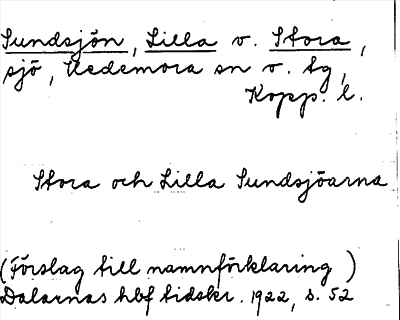 Sundsjön, Lilla o. Stora,
sjö, Hedemora sn o. tg,
Kopp. l.
Stora och Lilla Sundsjöarna
(Förslag till namnförklaring)
Dalarnas hbf tidskr. 1922, s. 52